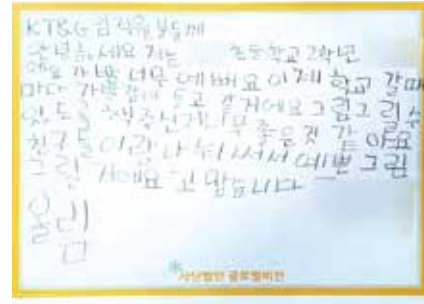 KT&G 임직원분들께
안녕하세요 저는 초등학교 2학년
에요 가방 너무 예뻐요 이제 학교 갈때
마다 가방 들고 갈거에요 그림 그릴 수
있도록 해주신게 너무 좋은것 같아요
친구들이랑 나눠서 예쁜 그림
그릴 거에요 고맙습니다
올림
사단법인 글로벌비전